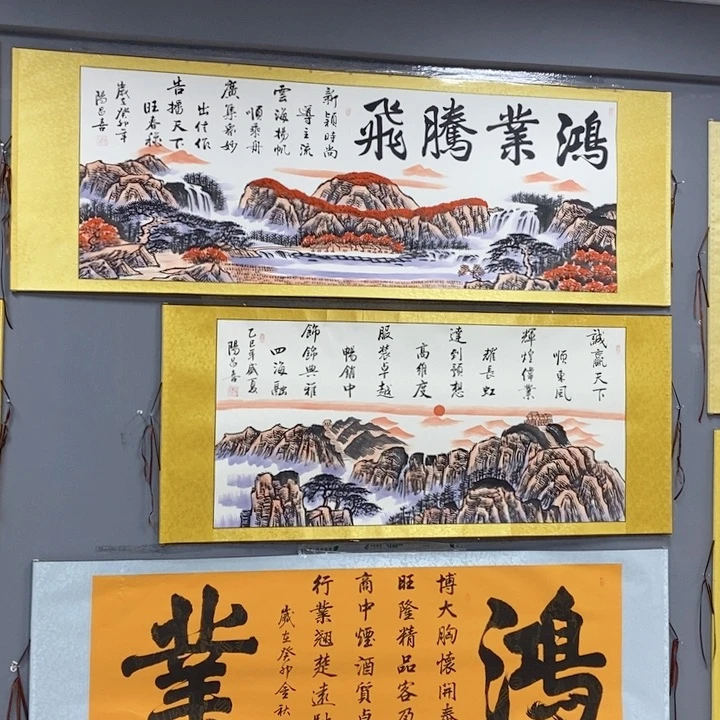 鴻業騰飛
新穎時尚
導主流
雲海揚帆
順乘舟
廣集妙
出佳作
告播天下
旺春穩
歲在癸卯年
陽昌
誠贏天下
順東風
輝煌偉業
耀長虹
達到預想
高維度
服裝卓越
暢銷中
飾錦典雅
四海融
乙巳年盛夏
陽昌
鴻
博大胸懷開泰
旺隆精品客
商中煙酒質卓
行業翹楚遠
歲在癸卯金秋
業